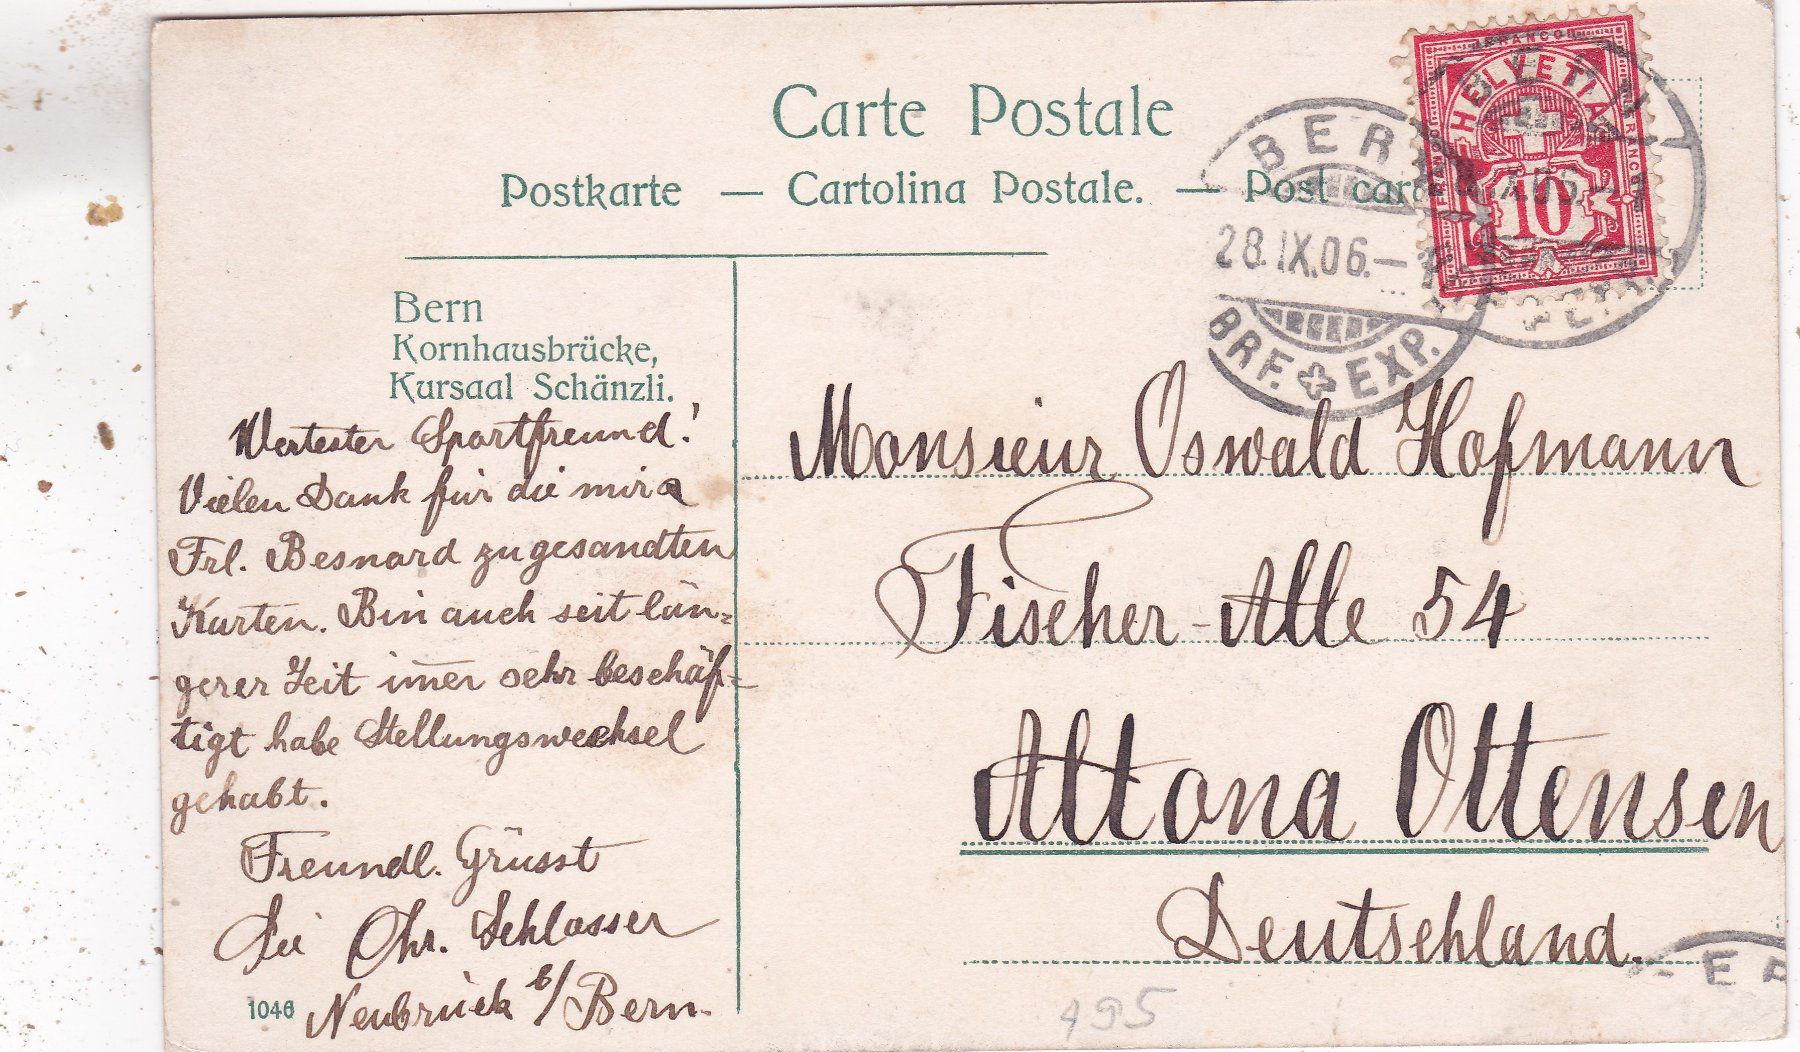 Carte Postale
Postkarte — Cartolina Postale. — Post car
FRANCO
HELVETIA
FRANCO
FRANCO
10
BERN
28.IX.06.–
BRF. EXP.
Bern
Kornhausbrücke,
Kursaal Schänzli.
Wertester Sportfreund!
Vielen Dank für die mir &
Frl. Besnard zugesandten
Karten. Bin auch seit län=
gerer Zeit im̅er sehr beschäf=
tigt habe Stellungswechsel
gehabt.
Freundl. Grüsst
Sie Chr. Schlosser
Neubrück b/Bern.
1046
Monsieur Oswald Hofmann
Fischer-Alle 54
Altona Ottensen
Deutschland.
495